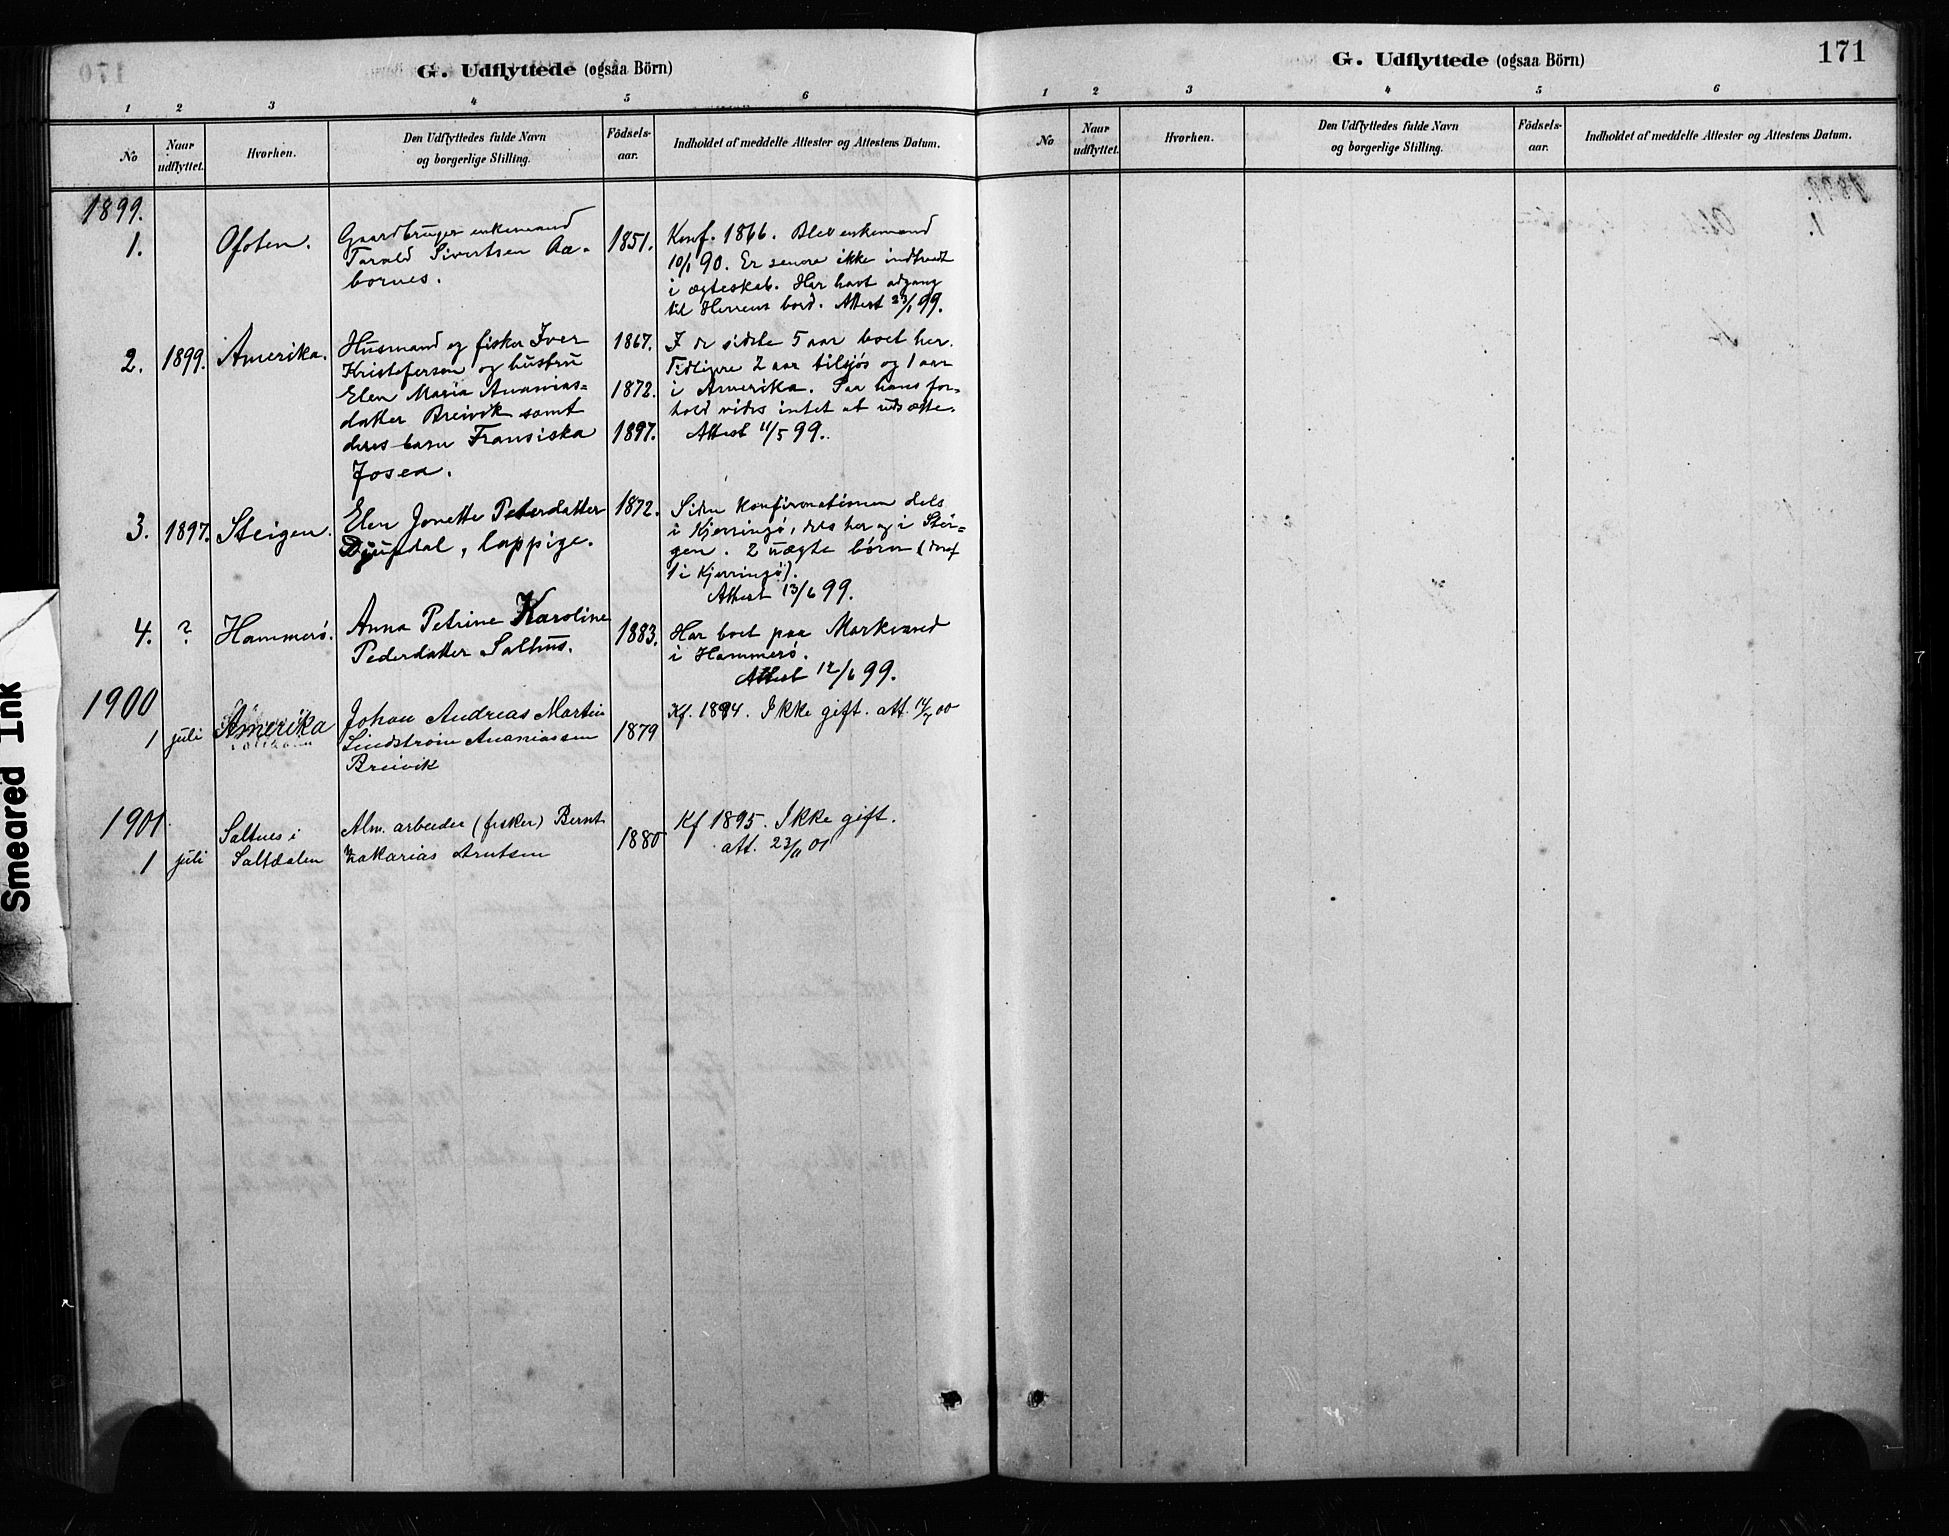 G. Udflyttede (ogsaa Börn)
1 2 3 4 5 6
No
Naar udflyttet.
Hvorhen.
Den Udflyttedes fulde Navn
og borgerlige Stilling.
Födsels-
aar.
Indholdet af meddelte Attester og Attestens Datum.
1899.
1.
Ofoten.
Gaardbruger enkemand
Tarald Sivertsen Aa-
bornes.
1851.
Konf. 1866. Blev enkemand
10/1 90. Er senere ikke indtraadt
i ægteskab. Har havt adgang
til Herrens bord. Attest 23/1 99.
2.
1899.
Amerika.
Husmand og fisker Iver
Kristofersen og hustru
Elen Maria Ananias-
datter Breivik samt
deres barn Fransiska
Josea.
1867.
1872.
1897.
I de sidste 5 aar boet her.
Tidligere 2 aar tilsjøs og 1 aar
i Amerika. Paa hans for-
hold vides intet at udsætte.
Attest 11/5 99.
3.
1897.
Steigen.
Elen Jonette Pedersdatter
Djupdal, lappige.
1872.
Siden Konfirmationen dels
i Kjerringø, dels her og i Stei-
gen. 2 uægte børn (deraf
1 i Kjerringø).
Attest 13/6 99.
4.
?
Hammerø.
Anna Petrine Karoline
Pedersdatter Salhus.
1883.
Har boet paa
i Hammerø.
Attest 12/6 99.
1900
1
juli
Amerika
Johan Andreas Martin
Lindstrøm Ananiassen
Breivik
1879
Kf. 1894. Ikke gift. att. 00
1901
1
juli
Saltnes i
Saltdalen
Alm. arbeider (fisker) Bernt
Zakarias Arntsen
1880
Kf 1895. Ikke gift.
att. 23/11 01
Smeared Ink
G. Udflyttede (ogsaa Börn)
171
1 2 3 4 5 6
No
Naar udflyttet.
Hvorhen.
Den Udflyttedes fulde Navn
og borgerlige Stilling.
Födsels-
aar.
Indholdet af meddelte Attester og Attestens Datum.